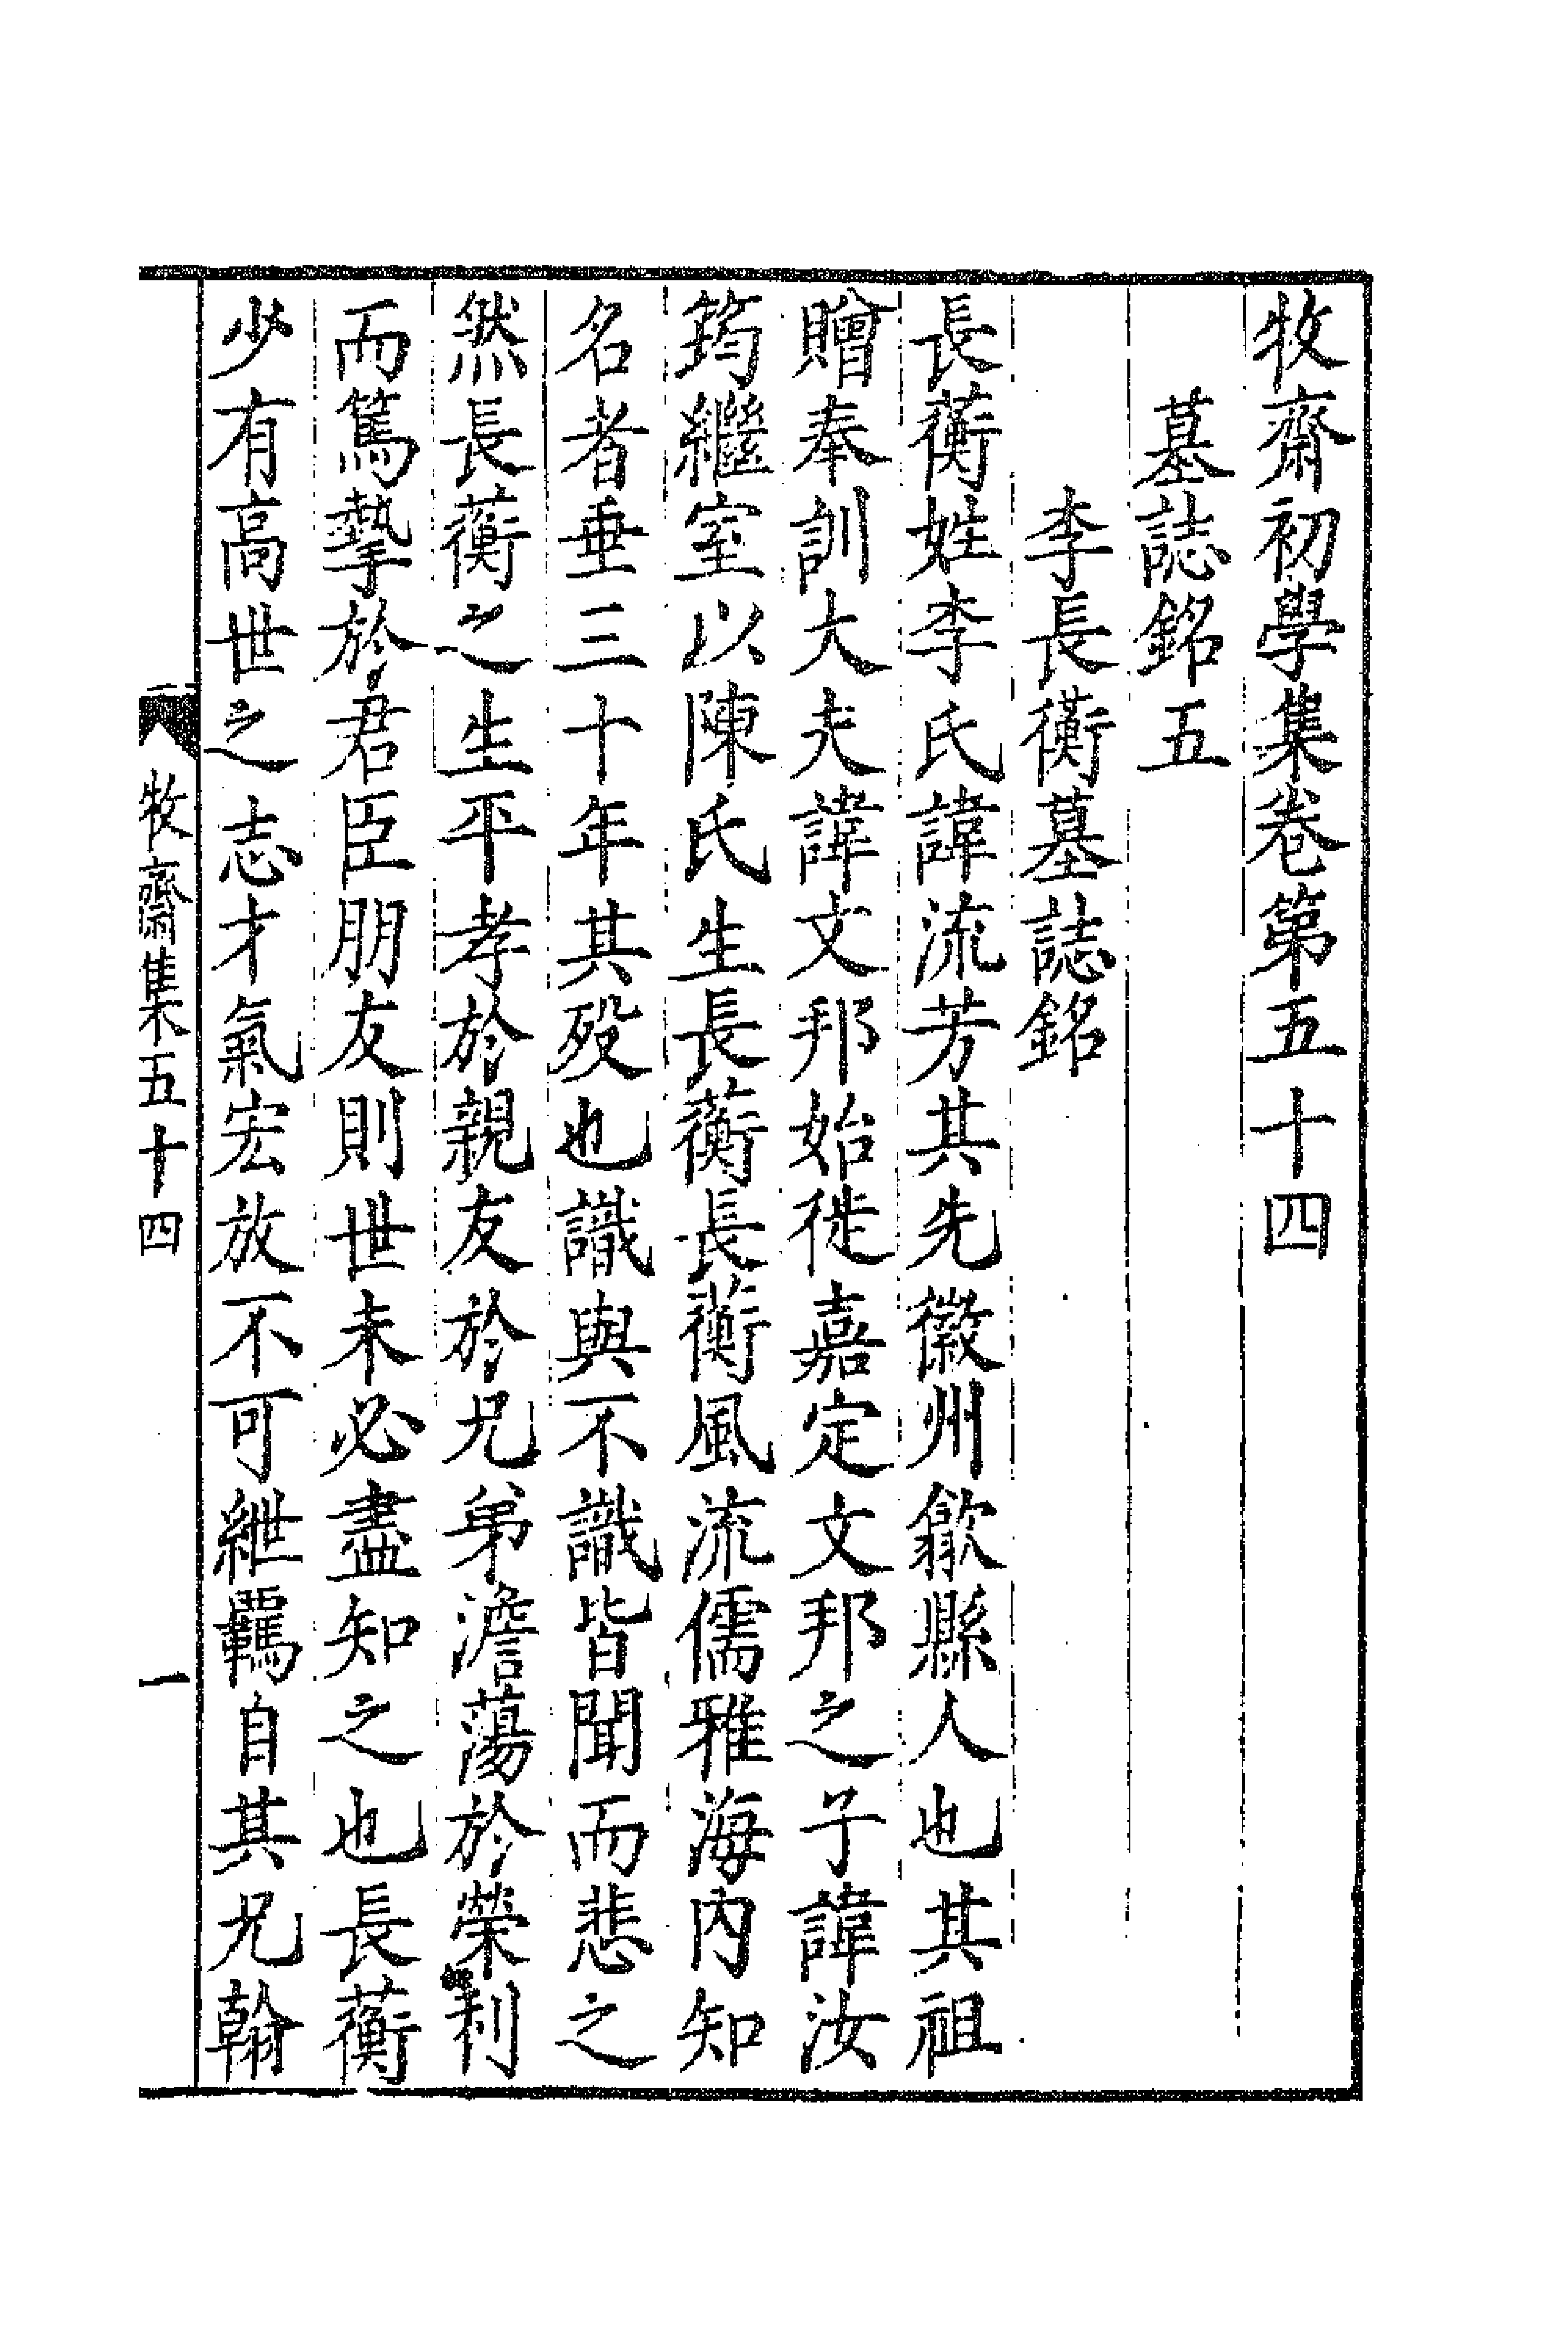 牧齋初學集卷第五十四
墓誌銘五
李長衡墓誌銘
長蘅姓李氏諱流芳其先徽州歙縣人也其祖
贈奉訓大夫諱文邦始徙嘉定文邦之子諱汝
筠繼室以陳氏生長蘅長蘅風流儒雅海內知
名者垂三十年其歿也識與不識皆聞而悲之
然長蘅之生平孝於親友於兄弟澹蕩於榮利
而篤摯於君臣朋友則世未必盡知之也長蘅
少有高世之志才氣宏放不可紲羈自其兄翰
牧齋集五十四
一